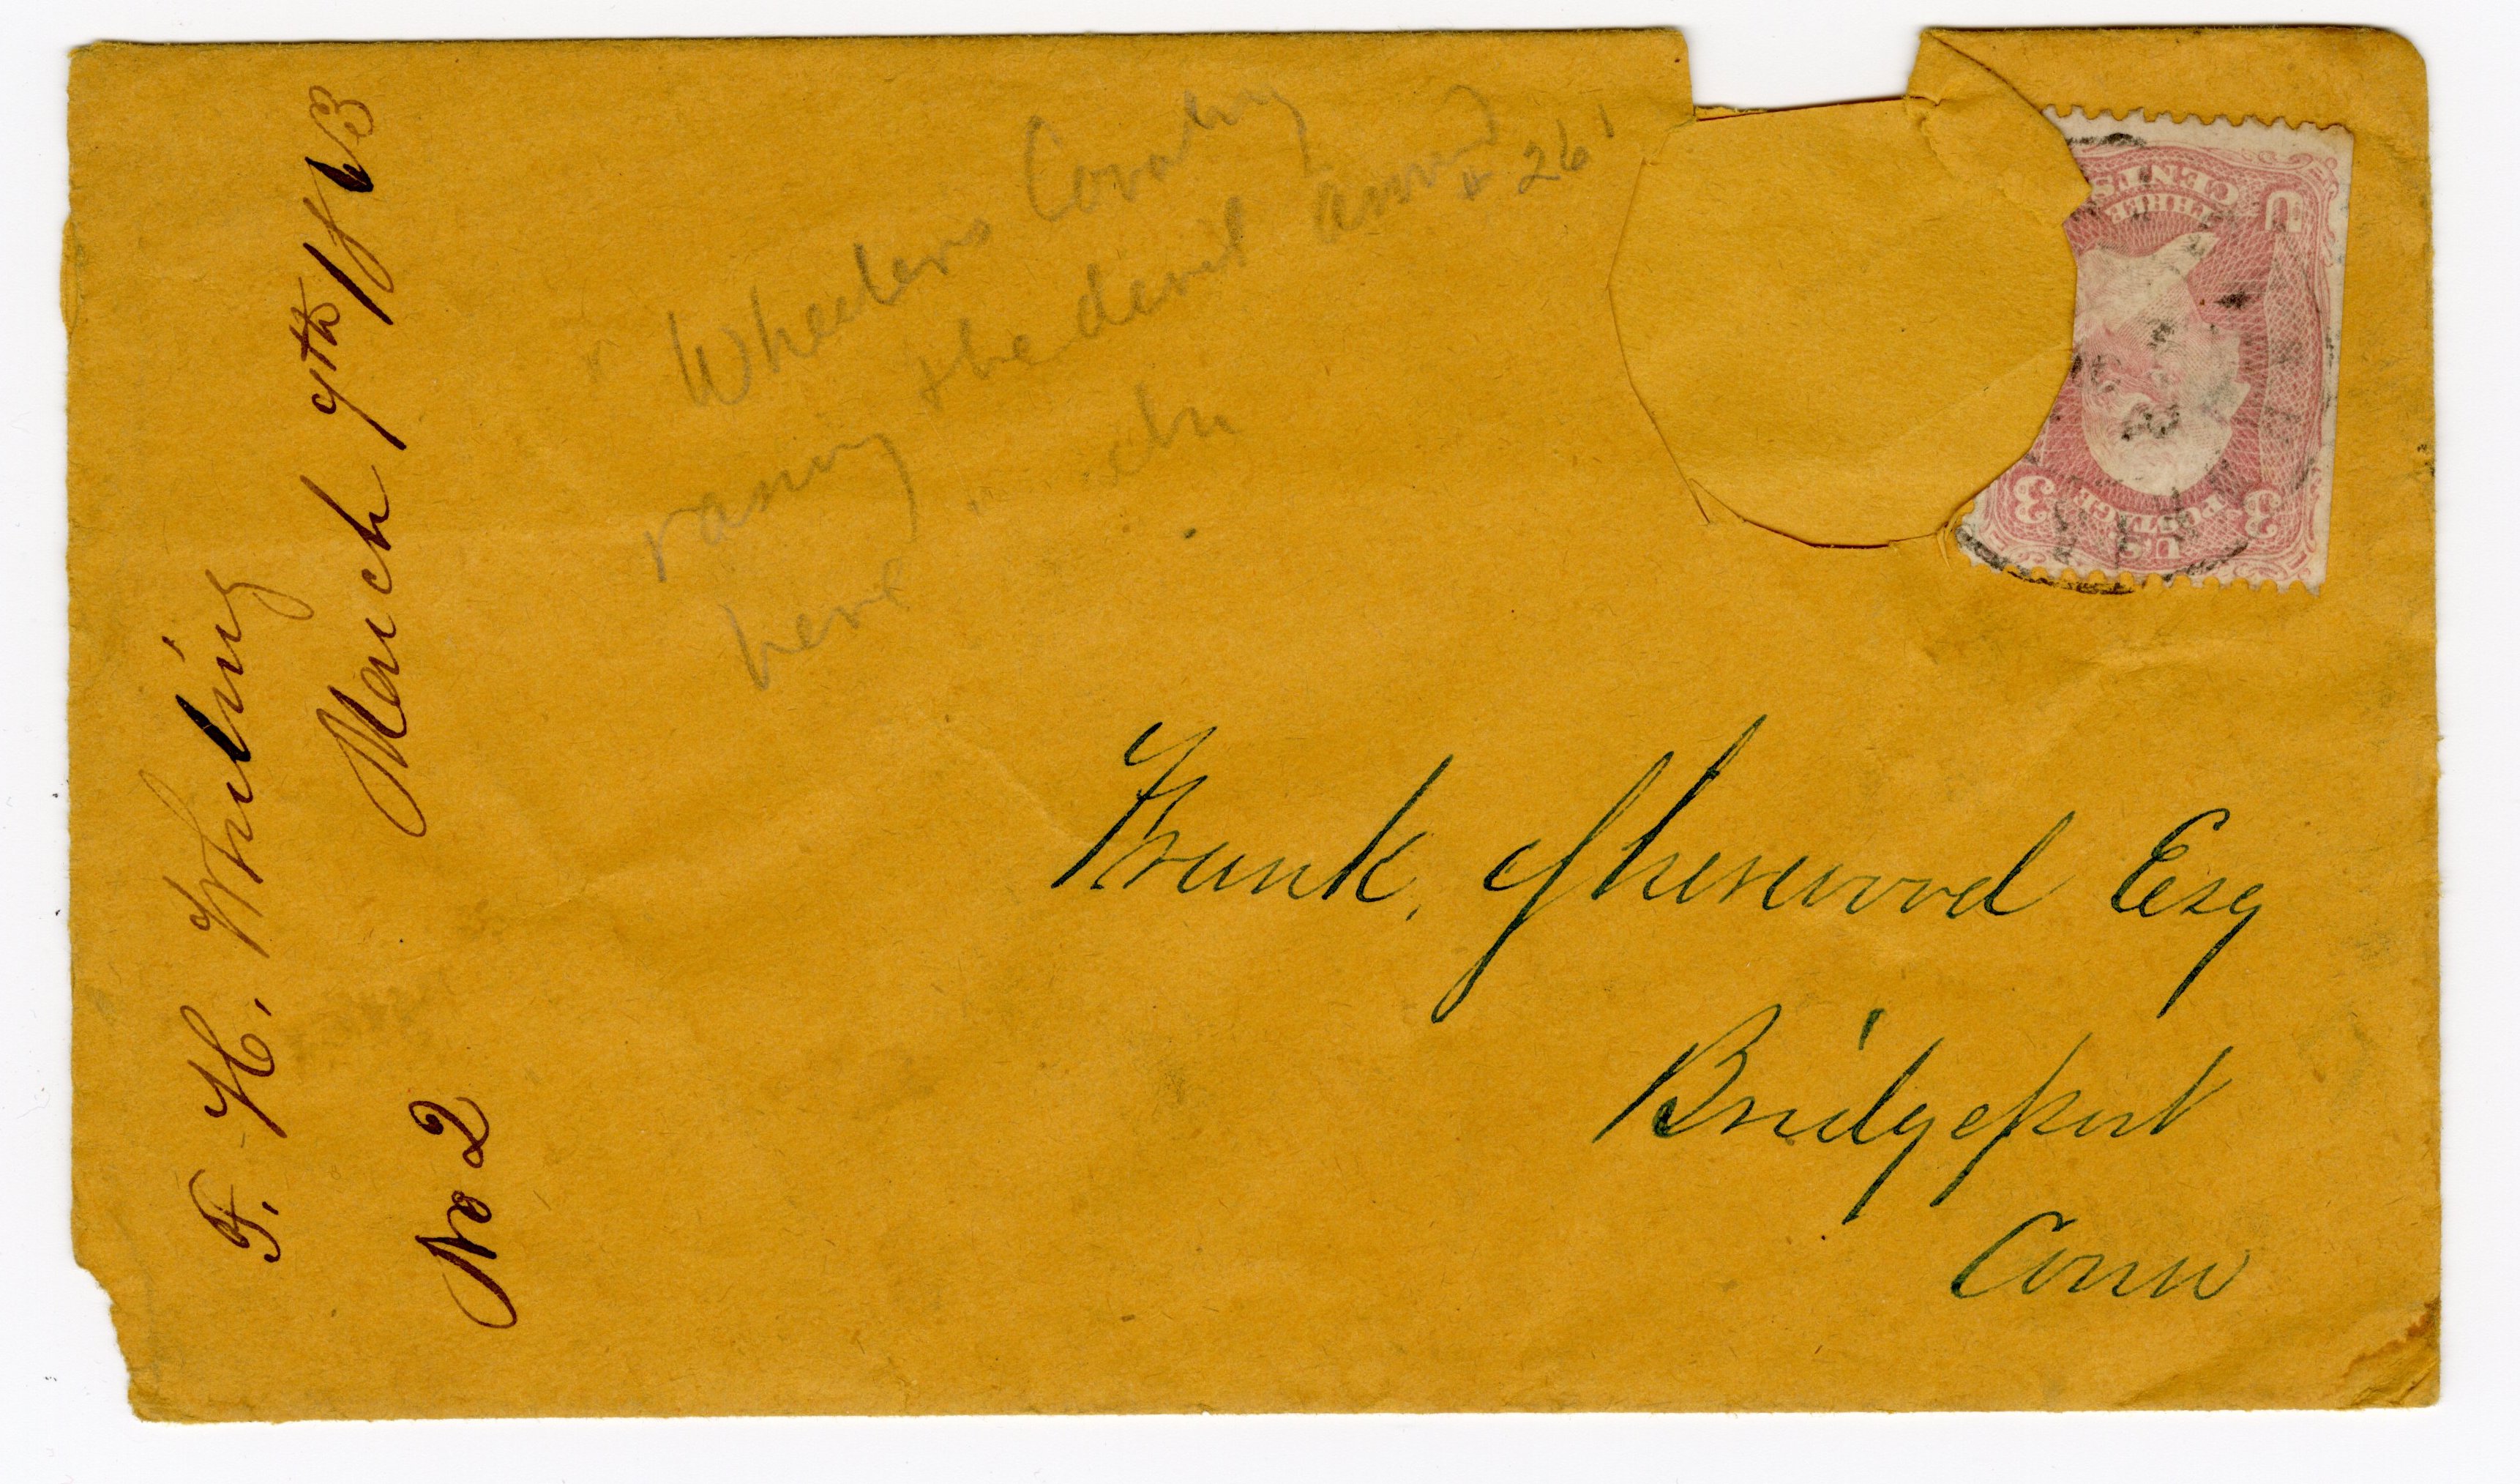 F. H. Whiting
March 9th 1863
No 2
Wheelers Cavalry
rasing the devil
here
26
Frank. Sherwood Esq
Bridgeport
Conn
U
THREE
CENTS
3 3
U.S.
POSTAGE